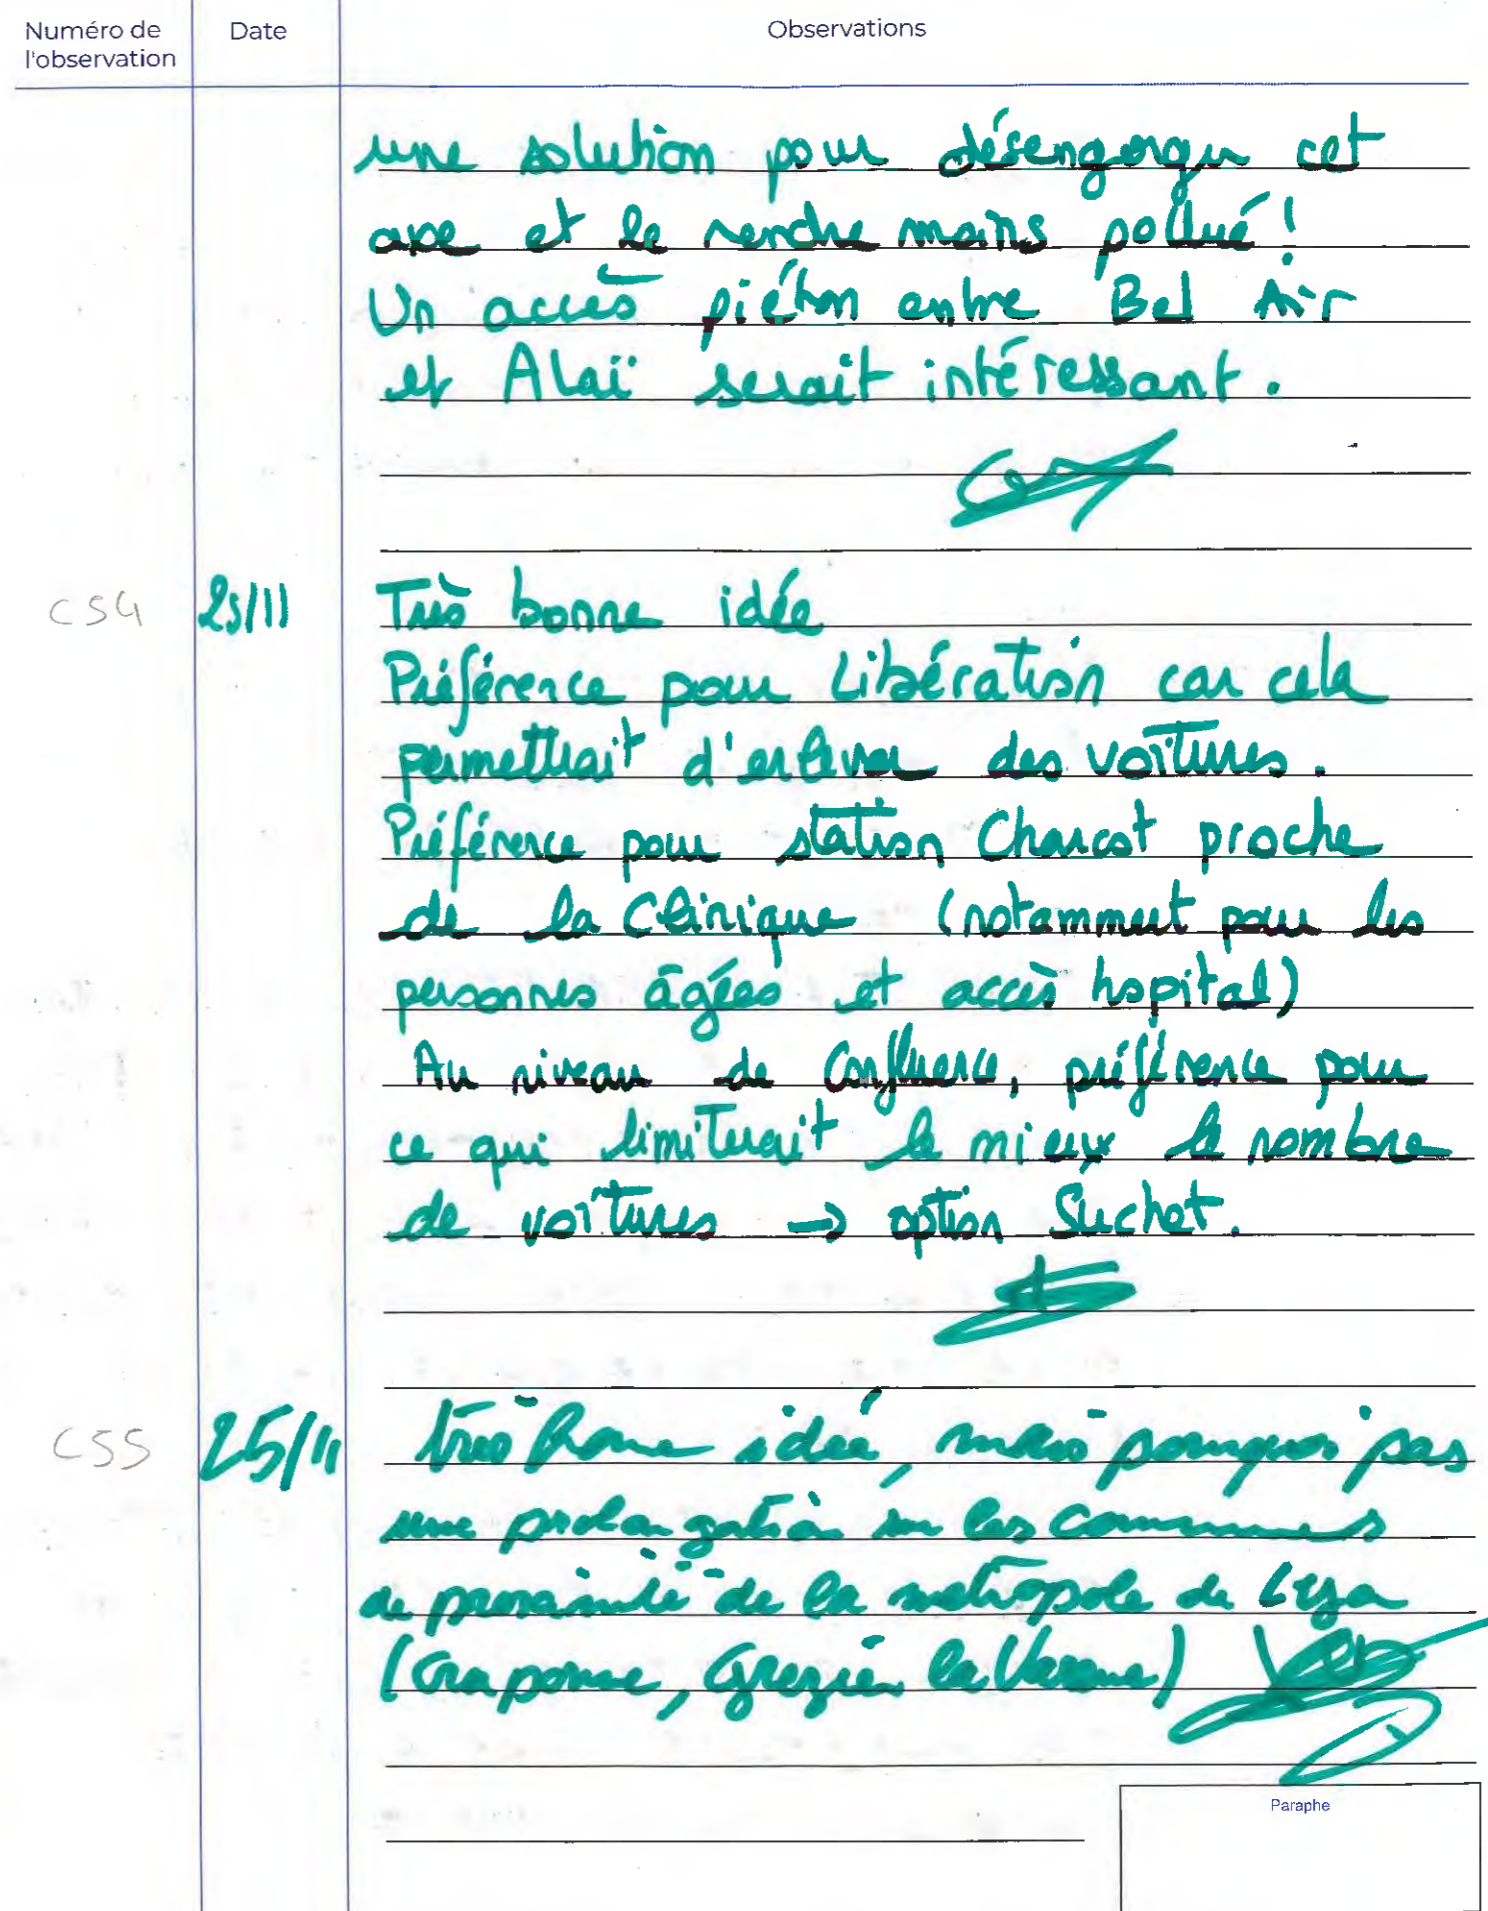 Numéro de l'observation Date Observations
une solution pour désengorger cet
axe et le rendre moins pollué !
Un accès piéton entre Bel Air
et Alaï serait intéressant.
CS4 25/11 Très bonne idée
Préférence pour Libération car cela
permettrait d'enlever des voitures.
Préférence pour station Charcot proche
de la Clinique (notamment pour les
personnes âgées et accès hopital)
Au niveau de Confluence, préférence pour
ce qui limiterait le mieux le nombre
de voitures → option Suchet.
CS5 25/11 très bonne idée, mais pourquoi pas
une prolongation sur les communes
de proximité de la métropole de Lyon
(Craponne, Grezieu la Varenne)
Paraphe